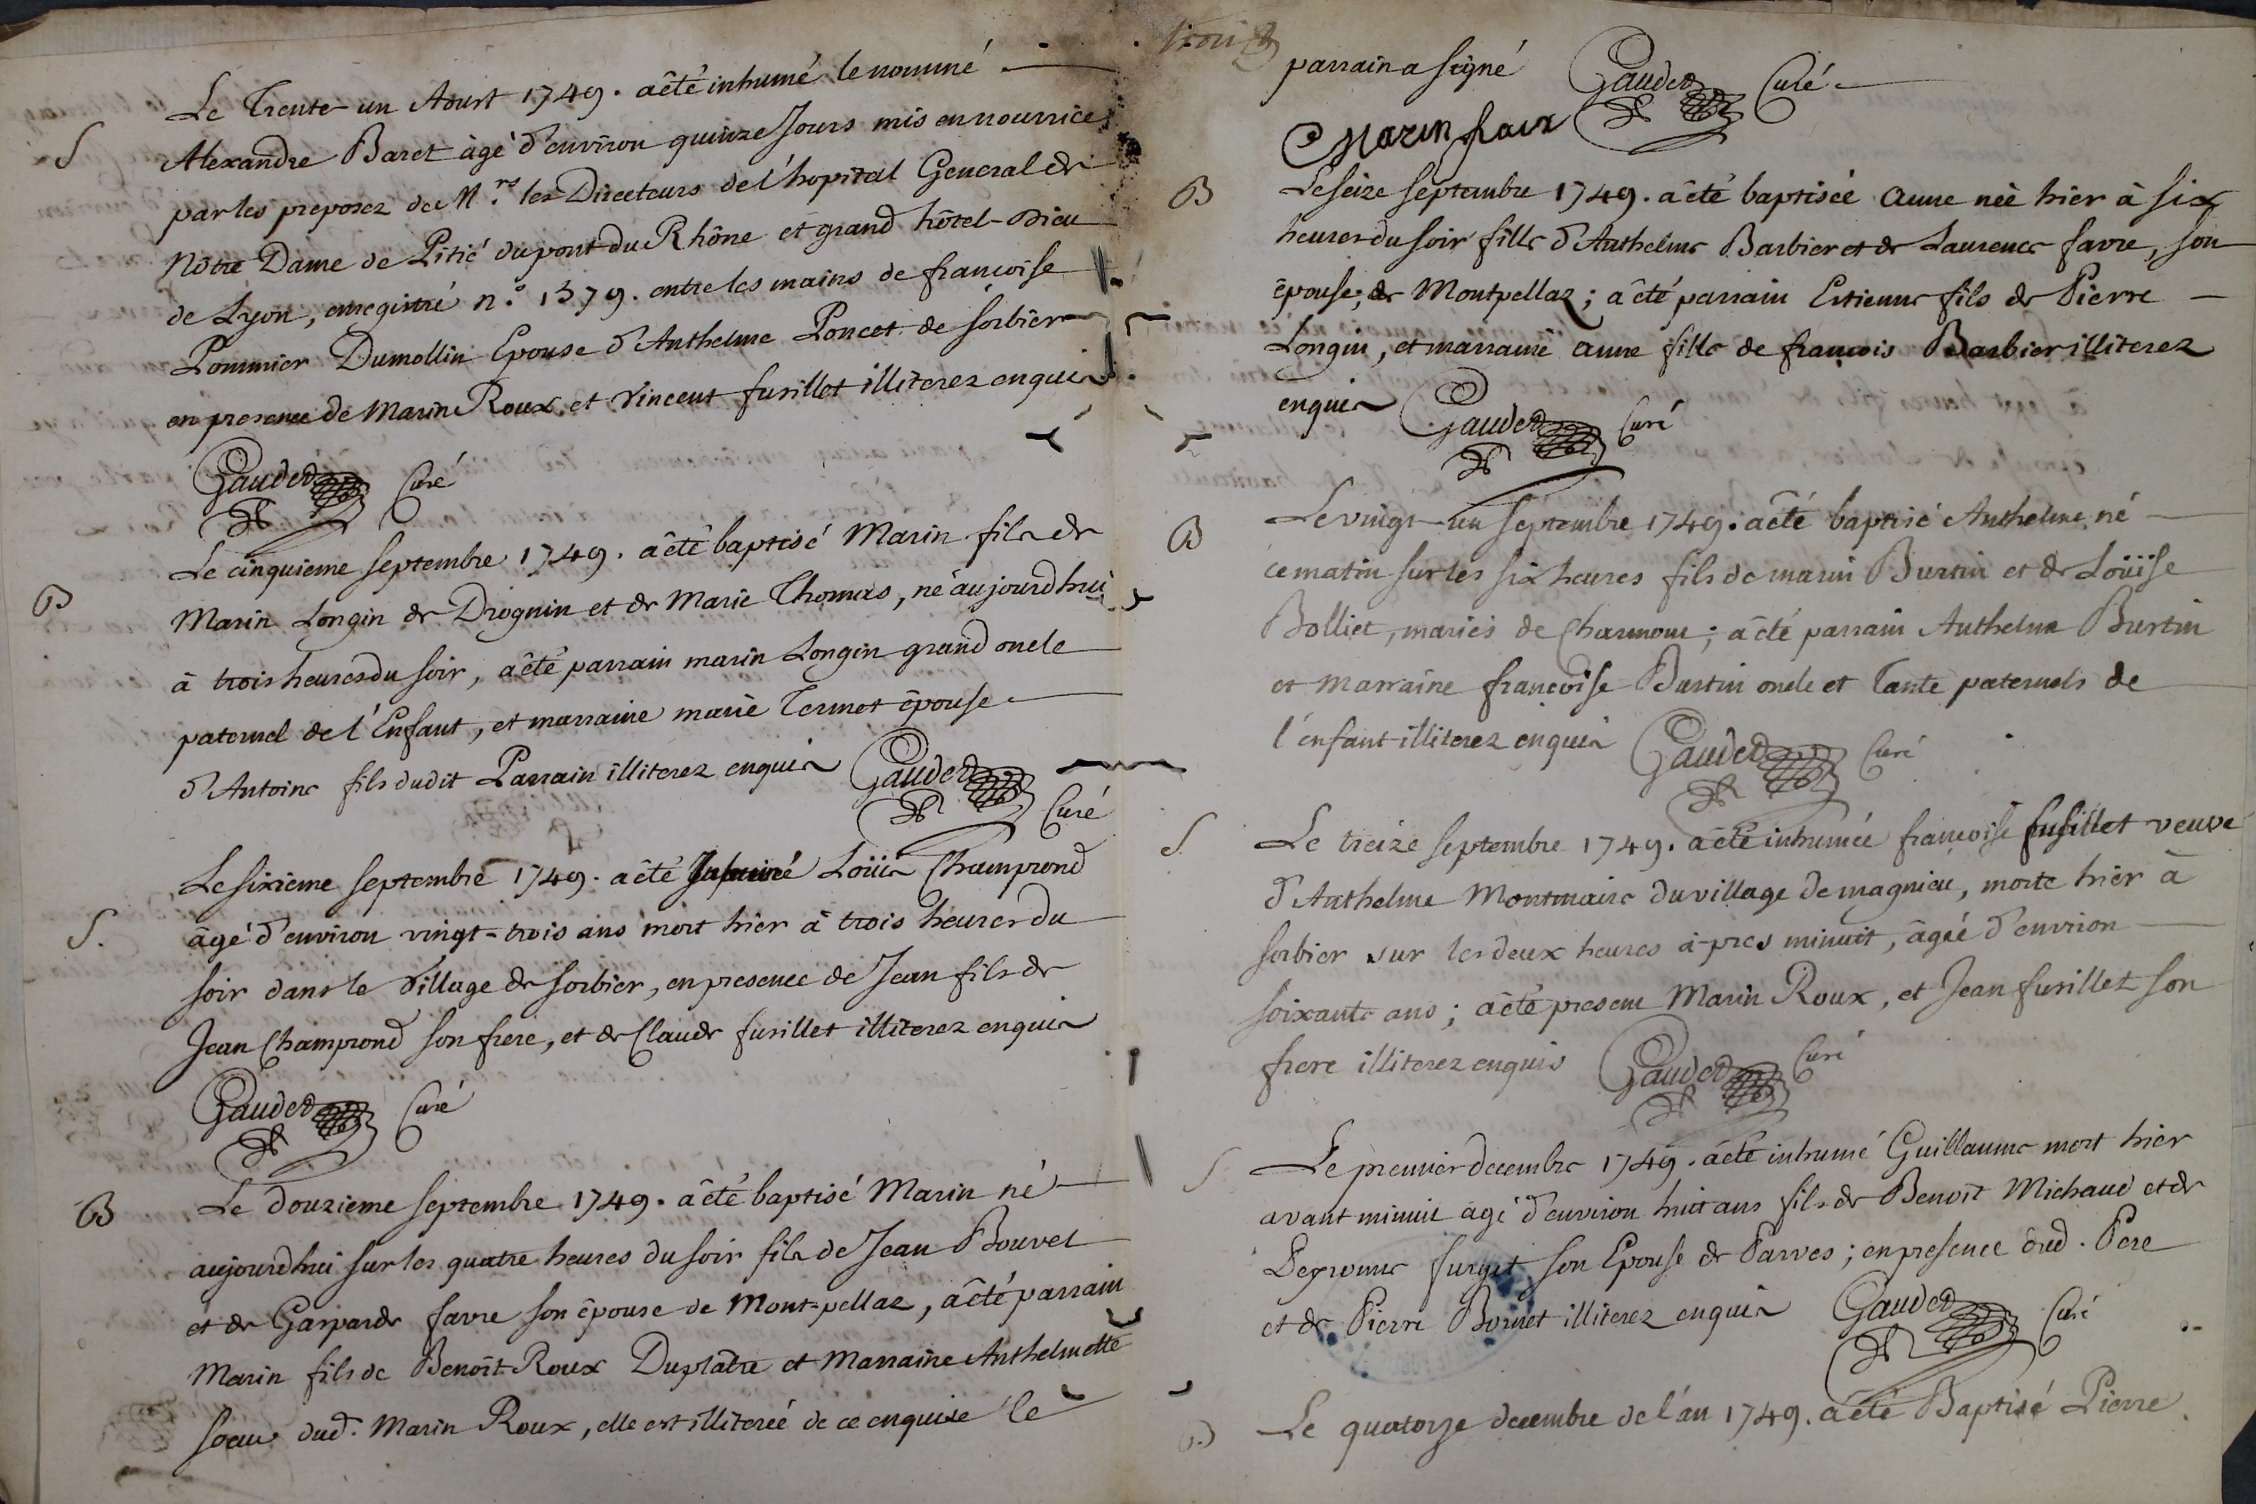 Le Trente-un Aoust 1749. a êté inhumé le nommé
S Alexandre Baret âgé d'environ quinze Jours mis en nourrice
par les preposez de M.rs les Directeurs de l'hopital General de
Nôtre Dame de Pitié du pont du Rhône et grand hôtel-Dieu
de Lyon, enregistré n.o 1379. entre les mains de francoise
Pommier Dumollin Epouse d'Anthelme Poncet de sorbier
en presence de Marin Roux, et Vincent fusillet illiterez enquis
Gaudet Curé
Le cinquieme septembre 1749. a êté baptisé Marin fils de
B Marin Longin de Drognin et de Marie Thomas, né aujourdhui
à trois heures du soir, a êté parrain marin Longin grand oncle
paternel de l'Enfant, et marraine marie Termet épouse
d'Antoine fils dudit Parrain illiterez enquis Gaudet
Curé
Le sixieme septembre 1749. a êté Loüis Champrond
S. âgé d'environ vingt-trois ans mort hier à trois heures du
soir dans le Village de sorbier, en presence de Jean fils de
Jean Champrond son frere, et de Claude fusillet illiterez enquis
Gaudet Curé
B Le douzieme septembre 1749. a êté baptisé Marin né
aujourdhui sur les quatre heures du soir fils de Jean Bouvet
et de Gasparde favre son épouse de Mont-pellaz, a êté parrain
Marin fils de Benoît Roux Duplâtre et Marraine Anthelmette
soeur dud. Marin Roux, elle est illiterée de ce enquise le
parrain a signé Gaudet Curé
Marin
B Le seize septembre 1749. a êté baptisée Anne née hier à six
heures du soir fille d'Anthelme Barbier et de Laurence favre, son
épouse, de Montpellaz; a êté parrain Estienne fils de Pierre
Longin, et marraine Anne fille de françois Barbier illiterez
enquis Gaudet Curé
B Le vingt-un septembre 1749. a êté baptisé Anthelme, né
ce matin sur les six heures fils de marin Burtin et de Loüise
Bolliet, mariés de Charmont; a êté parrain Anthelme Burtin
et marraine françoise Burtin oncle et Tante paternels de
l'enfant illiterez enquis Gaudet Curé
S. Le treize septembre 1749. a êté inhumée françoise fusillet veuve
d'Anthelme Montmaire du village de magnieu, morte hier à
sorbier sur les deux heures a-pres minuit, âgée d'environ
soixante ans; a êté present Marin Roux, et Jean fusillet son
frere illiterez enquis Gaudet Curé
S Le premier decembre 1749. a êté inhumé Guillaume mort hier
avant minuit âgé d'environ huit ans fils de Benoît Michaud et de
son Epouse de Parves; en presence dud. Pere
et de Pierre Bornet illiterez enquis Gaudet Curé
B Le quatorze decembre de l'an 1749. a êté Baptisé Pierre